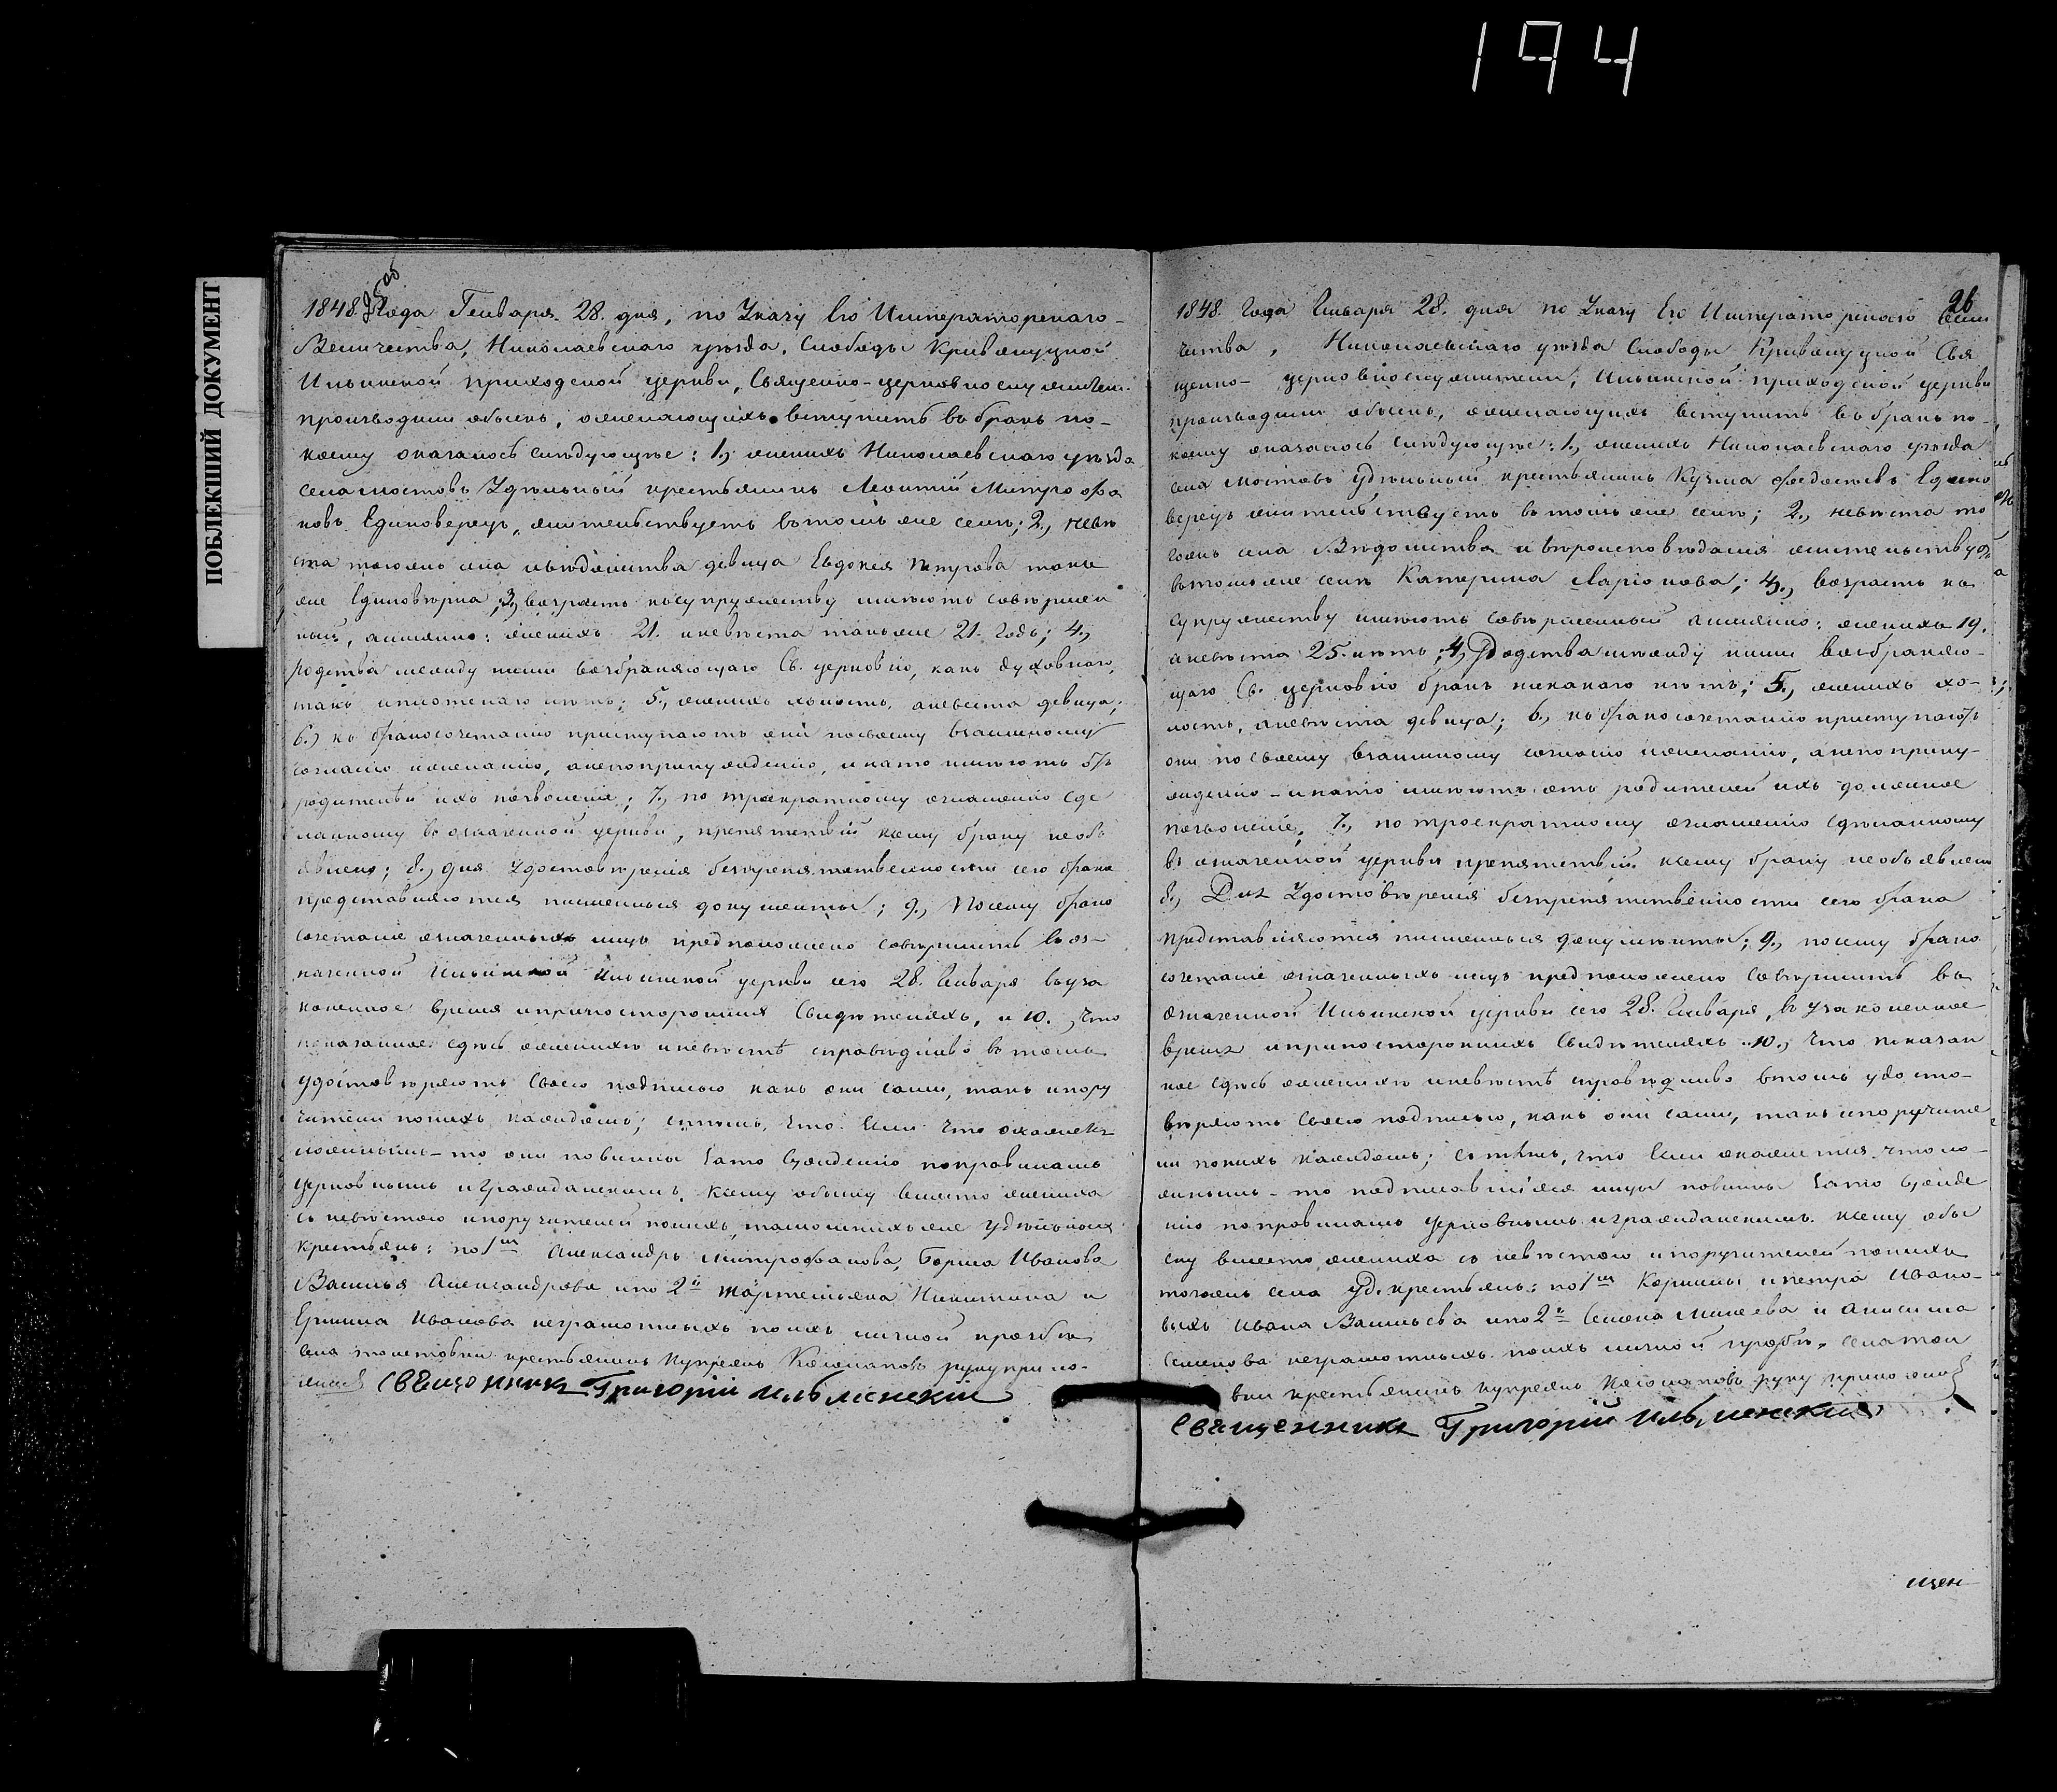 194
ПОБЛЕКШИЙ ДОКУМЕНТ
25об
1848. Года Генваря 28. дня, по Указу Его Императорскаго
Величества, Николаевскаго уезда, Слободы Криволуцкой
Ильинской приходской церкви, Священно-церковнослужители
производили обыскъ, желающихъ вступить въ бракъ по
коему оказалось следующее: 1., женихъ Николаевскаго уезда
села Мостовъ Удельный крестьянинъ Леонтий Митрофа
новъ Единоверецъ, жительствуетъ въ томъ же селе; 2., неве
ста тогожъ села и ведомства девица Евдокея Петрова такъ
же Единоверка; 3., возрастъ къ супружеству имеютъ совершен
ный, а именно: женихъ 21. и невеста также 21. Годъ; 4.,
родства между ними возбраняющаго Св. церковію, какъ духовнаго,
такъ и плотскаго нетъ; 5., женихъ холостъ, а невеста девица;
6.) къ бракосочетанію приступаютъ они по своему взаимному
согласію и желанію, а не по принужденію, и на то имеютъ отъ
родителей ихъ позволеніе; 7., по троекратному оглашенію сде
ланному въ означенной церкви, препятствій къ сему браку не объ
явлено; 8., для удостоверенія безпрепятственности сего брака
представляются письменныя документы; 9., По сему брако
сочетаніе означенныхъ лицъ предположено совершить въ оз-
наченной Ильинской церкви сего 28. Генваря въ уза
коненное время и при постороннихъ Свидетеляхъ, и 10., что
показанное здесь о женихе и невесте справедливо въ томъ
удостоверяютъ своею подписью какъ они сами, такъ и пору
чители по нихъ каждомъ; с темъ, что если что окажется
ложнымъ - то они повинны за то сужденію по правиламъ
церковнымъ и гражданскимъ. К сему обыску вместо жениха
съ невестою и поручителей по нихъ, тамошнихъ же удельныхъ
крестьянъ: по 1мъ Александръ Митрофанова, Бориса Иванова
Василья Александрова и по 2й Мартемьяна Никитина и
Ермила Иванова неграмотныхъ по ихъ личной прозьбе
села Толстовки крестьянинъ Купреянъ руку прило-
жилъ Священникъ Григорій Ильменскій
26
1848. Года Генваря 28. дня по Указу Его Императорскаго Вели
чества, Николаевскаго уезда Слободы Криволуцкой Свя
щенно-церковнослужители, Ильинской приходской церкви
производили обыскъ, желающихъ вступить въ бракъ по-
коему оказалось следующее: 1., женихъ Николаевскаго уезда
села Мостовъ удельный крестьянинъ Кузма Федотовъ Едино
верецъ жительствуетъ въ томъ же селе; 2., невеста то
гожъ села Ведомства и вероисповеданія жительствую
въ томъ же селе Катерина Ларіонова; 3., возрастъ къ
супружеству имеютъ совершенный а именно: жениха 19.
а невеста 25. летъ; 4., Родства между ними возбраняю-
щаго Св. церковію бракъ никакаго нетъ; 5., женихъ хо-
лостъ, а невеста девица; 6., къ бракосочетанію приступаютъ
они по своему взаимному согласію и желанію, а не по прину-
жденію - и на то имеютъ отъ родителей ихъ должное
позволеніе, 7., по троекратному оглашенію сделанному
въ означенной церкви препятствій к сему браку не объявлено
8., Для Удостоверенія безпрепятственности сего брака
представляются письменныя документы; 9., по сему брако
сочетаніе означенныхъ лицъ предположено совершить въ
означенной Ильинской церкви сего 28. Генваря, въ узаконенное
время и при постороннихъ Свидетеляхъ 10., что показан
ное здесь о женихе и невесте справедливо в томъ удосто-
веряютъ своею подписью, какъ они сами, такъ и поручите
ли по нихъ каждомъ; съ темъ, что если окажется что ло-
жнымъ - то подписавшіяся лицы повинны за то сужде
нію по правиламъ церковнымъ и гражданскимъ. К сему обы
ску вместо жениха съ невестою и поручителей по нихъ
тогожъ села уд. крестьянъ: по 1мъ и Петра Ивано-
выхъ Ивана Васильева и по 2й Семена Минеева и Анисима
Семенова неграмотныхъ по ихъ личной прозьбе, села Тол
вки крестьянинъ Купреянъ руку приложилъ
Священникъ Григорій Ильменскій
щен